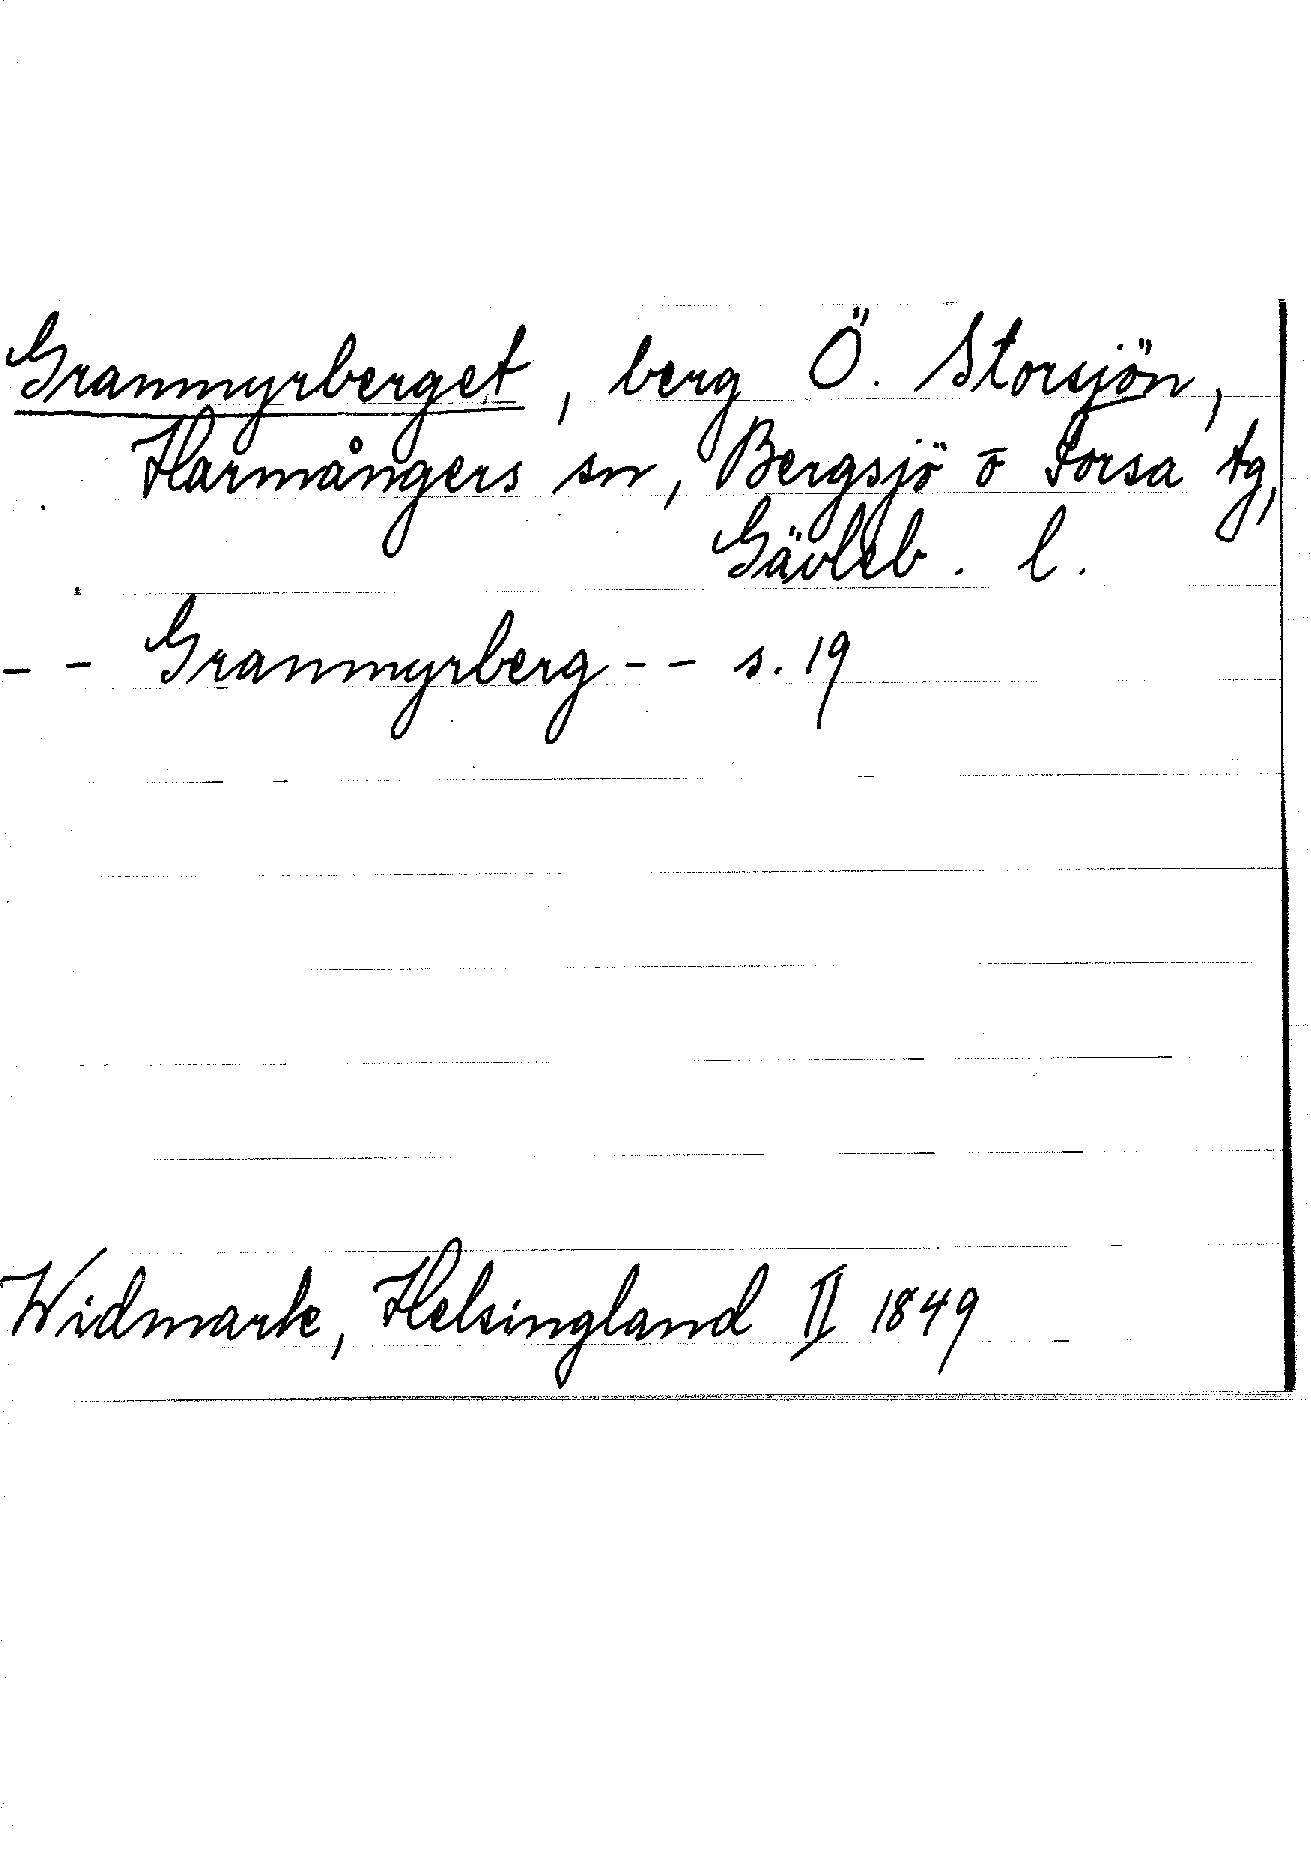 Granmyrberget, berg Ö. Storsjön,
Harmångers sn, Bergsjö o Forsa tg,
Gävleb. l.
- - Granmyrberg - - s. 19
Widmark, Helsingland II 1849